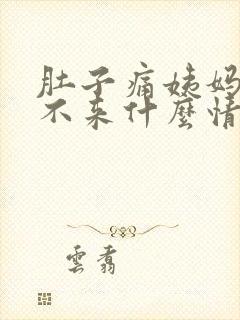 肚子痛姨妈
不来什麼情
雲翥